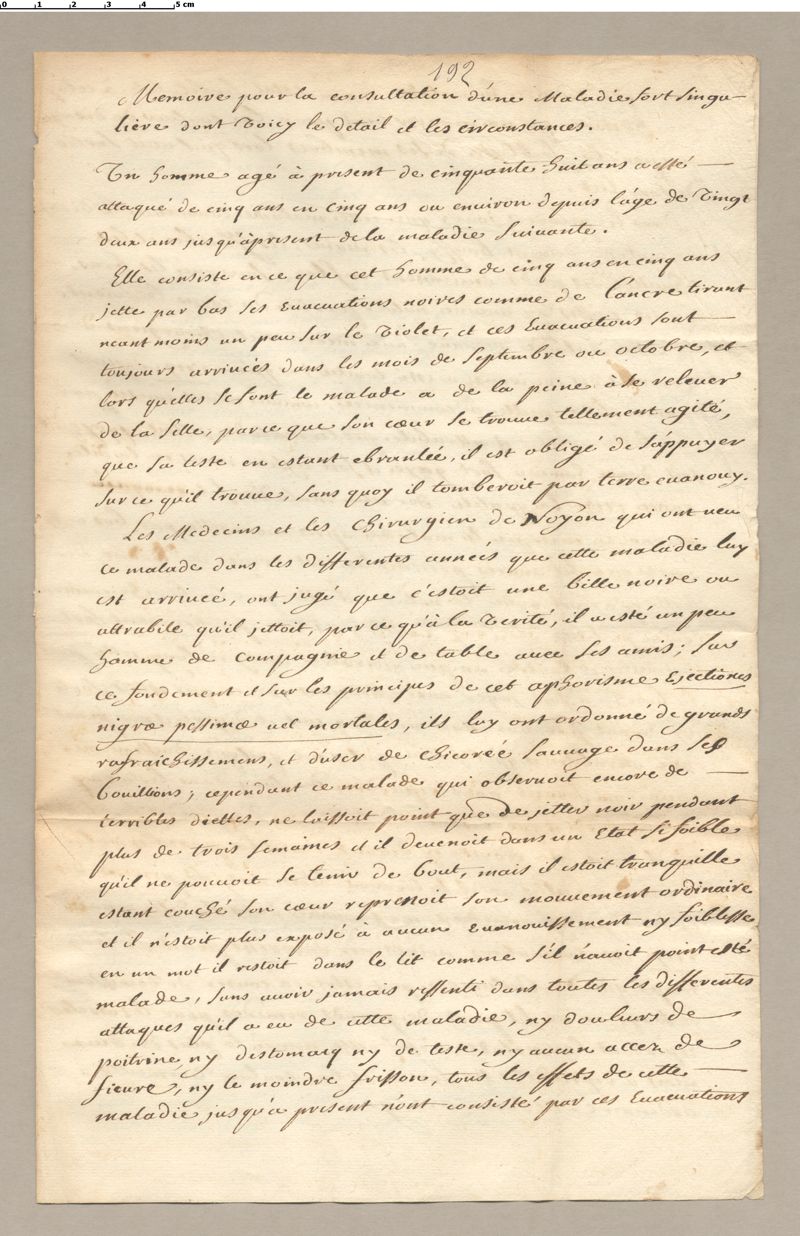 0 1 2 3 4 5 cm
192
Memoire pour la consultation d'une Maladie fort singu-
liere dont Voicy le detail et les circonstances.
Un homme agé à present de cinquante huit ans a esté
attaqué de cinq ans en cinq ans ou environ depuis l'âge de Vingt
deux ans jusqu'àpresent de la maladie Suivante.
Elle consiste en ce que cet homme de cinq ans en cinq ans
jette par bas ses Evacuations noires comme de l'ancre tirant
neantmoins un peu sur le Violet, et ces Evacuations sont
toujours arrivées dans les mois de Septembre ou octobre, et
lors qu'elles se font le malade a de la peine à se relever
de la selle, parce que son cœur se trouve tellement agité,
que sa teste en estant ebranlée, il est obligé de s'appuyer
sur ce qu'il trouve, sans quoy il tomberoit par terre evanouy.
Les Medecins et les Chirurgien de Noyon qui ont veu
ce malade dans les differentes années que cette maladie luy
est arrivée, ont jugé que c'estoit une bille noire ou
attrabile qu'il jettoit, parce qu'à la Verité, il a esté un peu
homme de compagnie et de table avec ses amis; sur
ce fondement et sur les principes de cet aphorisme Ejectiones
nigræ pessimæ vel mortales, ils luy ont ordonné de grands
rafraichissemens, et d'user de chicorée sauvage dans ses
bouillions; cependant ce malade qui observoit encore de
terribles diettes, ne laissoit point que de jetter noir pendant
plus de trois semaines et il devenoit dans un Etat si foible
qu'il ne pouvoit se tenir de bout, mais il estoit tranquille
estant couché son cœur reprenoit son mouvement ordinaire
et il n'estoit plus exposé à aucun evanouissement ny foiblesse
en un mot il restoit dans le lit comme s'il n'avoit point esté
malade, sans avoir jamais ressenti dans toutes les differentes
attaques qu'il a eu de cette maladie, ny douleurs de
poitrine, ny d'estomacq ny de teste, ny aucun accez de
fievre, ny le moindre frisson, tous les effets de cette
maladie jusqu'a present n'ont consisté par ces Evacuations